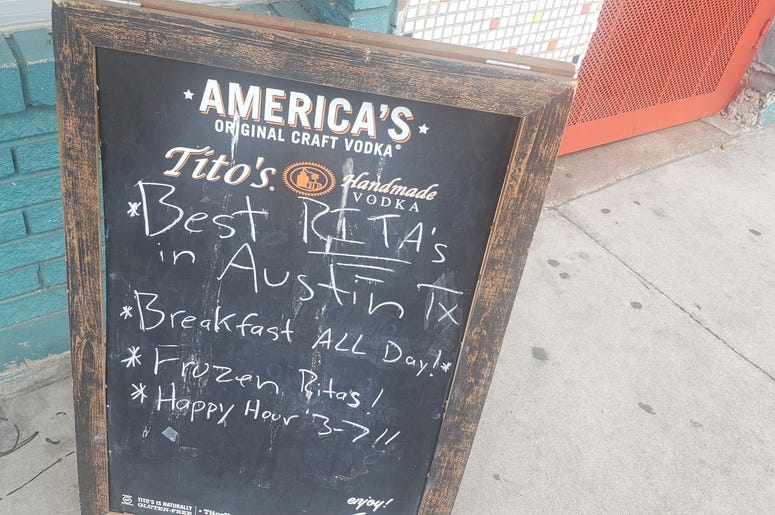 AMERICA'S
ORIGINAL CRAFT VODKA®
Tito's® Handmade
VODKA
*Best RITA's
in Austin Tx
*Breakfast ALL Day!*
* Frozen Rita's!
* Happy Hour 3-7!!
enjoy!
TITO'S IS NATURALLY
GLUTEN-FREE